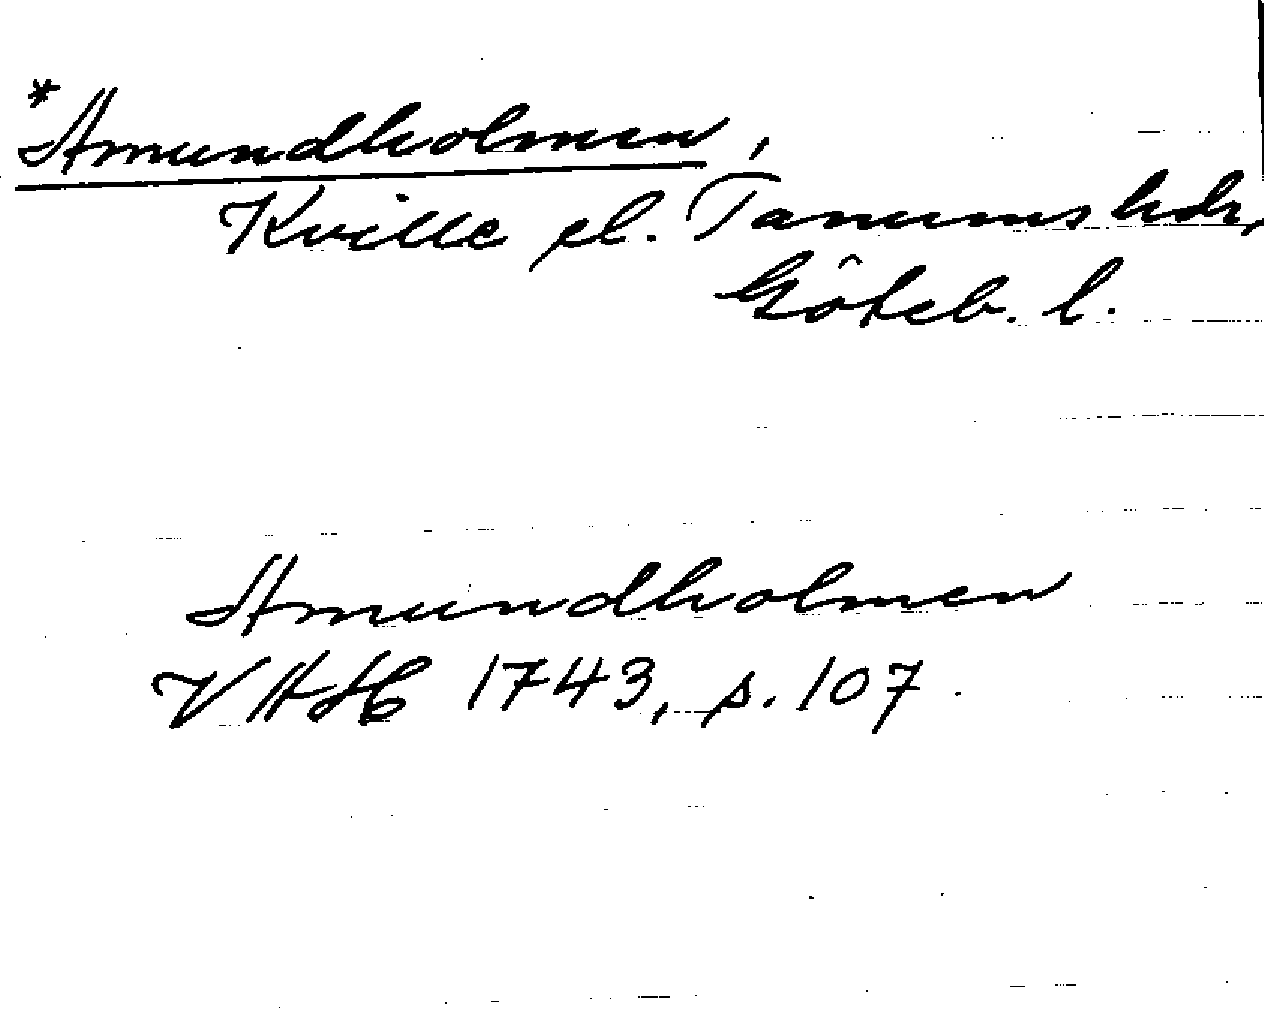 *Amundholmen,
Kville el. Tanums hdr,
Göteb. l.
Amundholmen
VHAH 1743, s. 107.